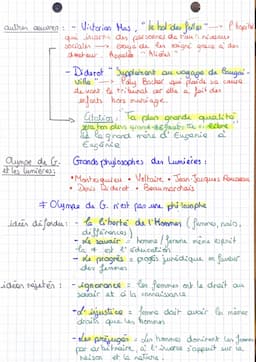 autres oeuvres : - Victorian Mas, "le bal des folles" → l'hôpital
qui des personnes de haut niveaux
sociales → essaye de les soigner grâce à des
docteur.
- Diderot "Supplément au voyage de Bougain-
ville" → Polly Backer qui plaide sa cause
devant le tribunal car elle a fait des
enfants hors mariage.
Citation : "Ta plus grande qualité
sera ton plus grand défaut. Tu
de la grand mère d'Eugénie à
Eugénie
Olympe de G. et les lumières :
Grands philosophes des Lumières :
• Montesquieu • Voltaire • Jean-Jacques Rousseau
• Denis Diderot • Beaumarchais
≠ Olympe de G. n'est pas une philosophe
idées défendus : - la liberté de l'Hommes (femmes, noirs,
différences)
- le savoir = homme / femme même esprit
la ≠ est l'éducation
- le progrès = progès juridique en faveur
des femmes
idées rejetées : - ignorance : les femmes ont le droit au
savoir et à la connaissance
- l'injustice = femme doit avoir les mêmes
droits que les hommes
- les préjugés = les hommes dominent les femmes
par arbitraire, à l'inverse s'appuit sur la
raison et la nature.